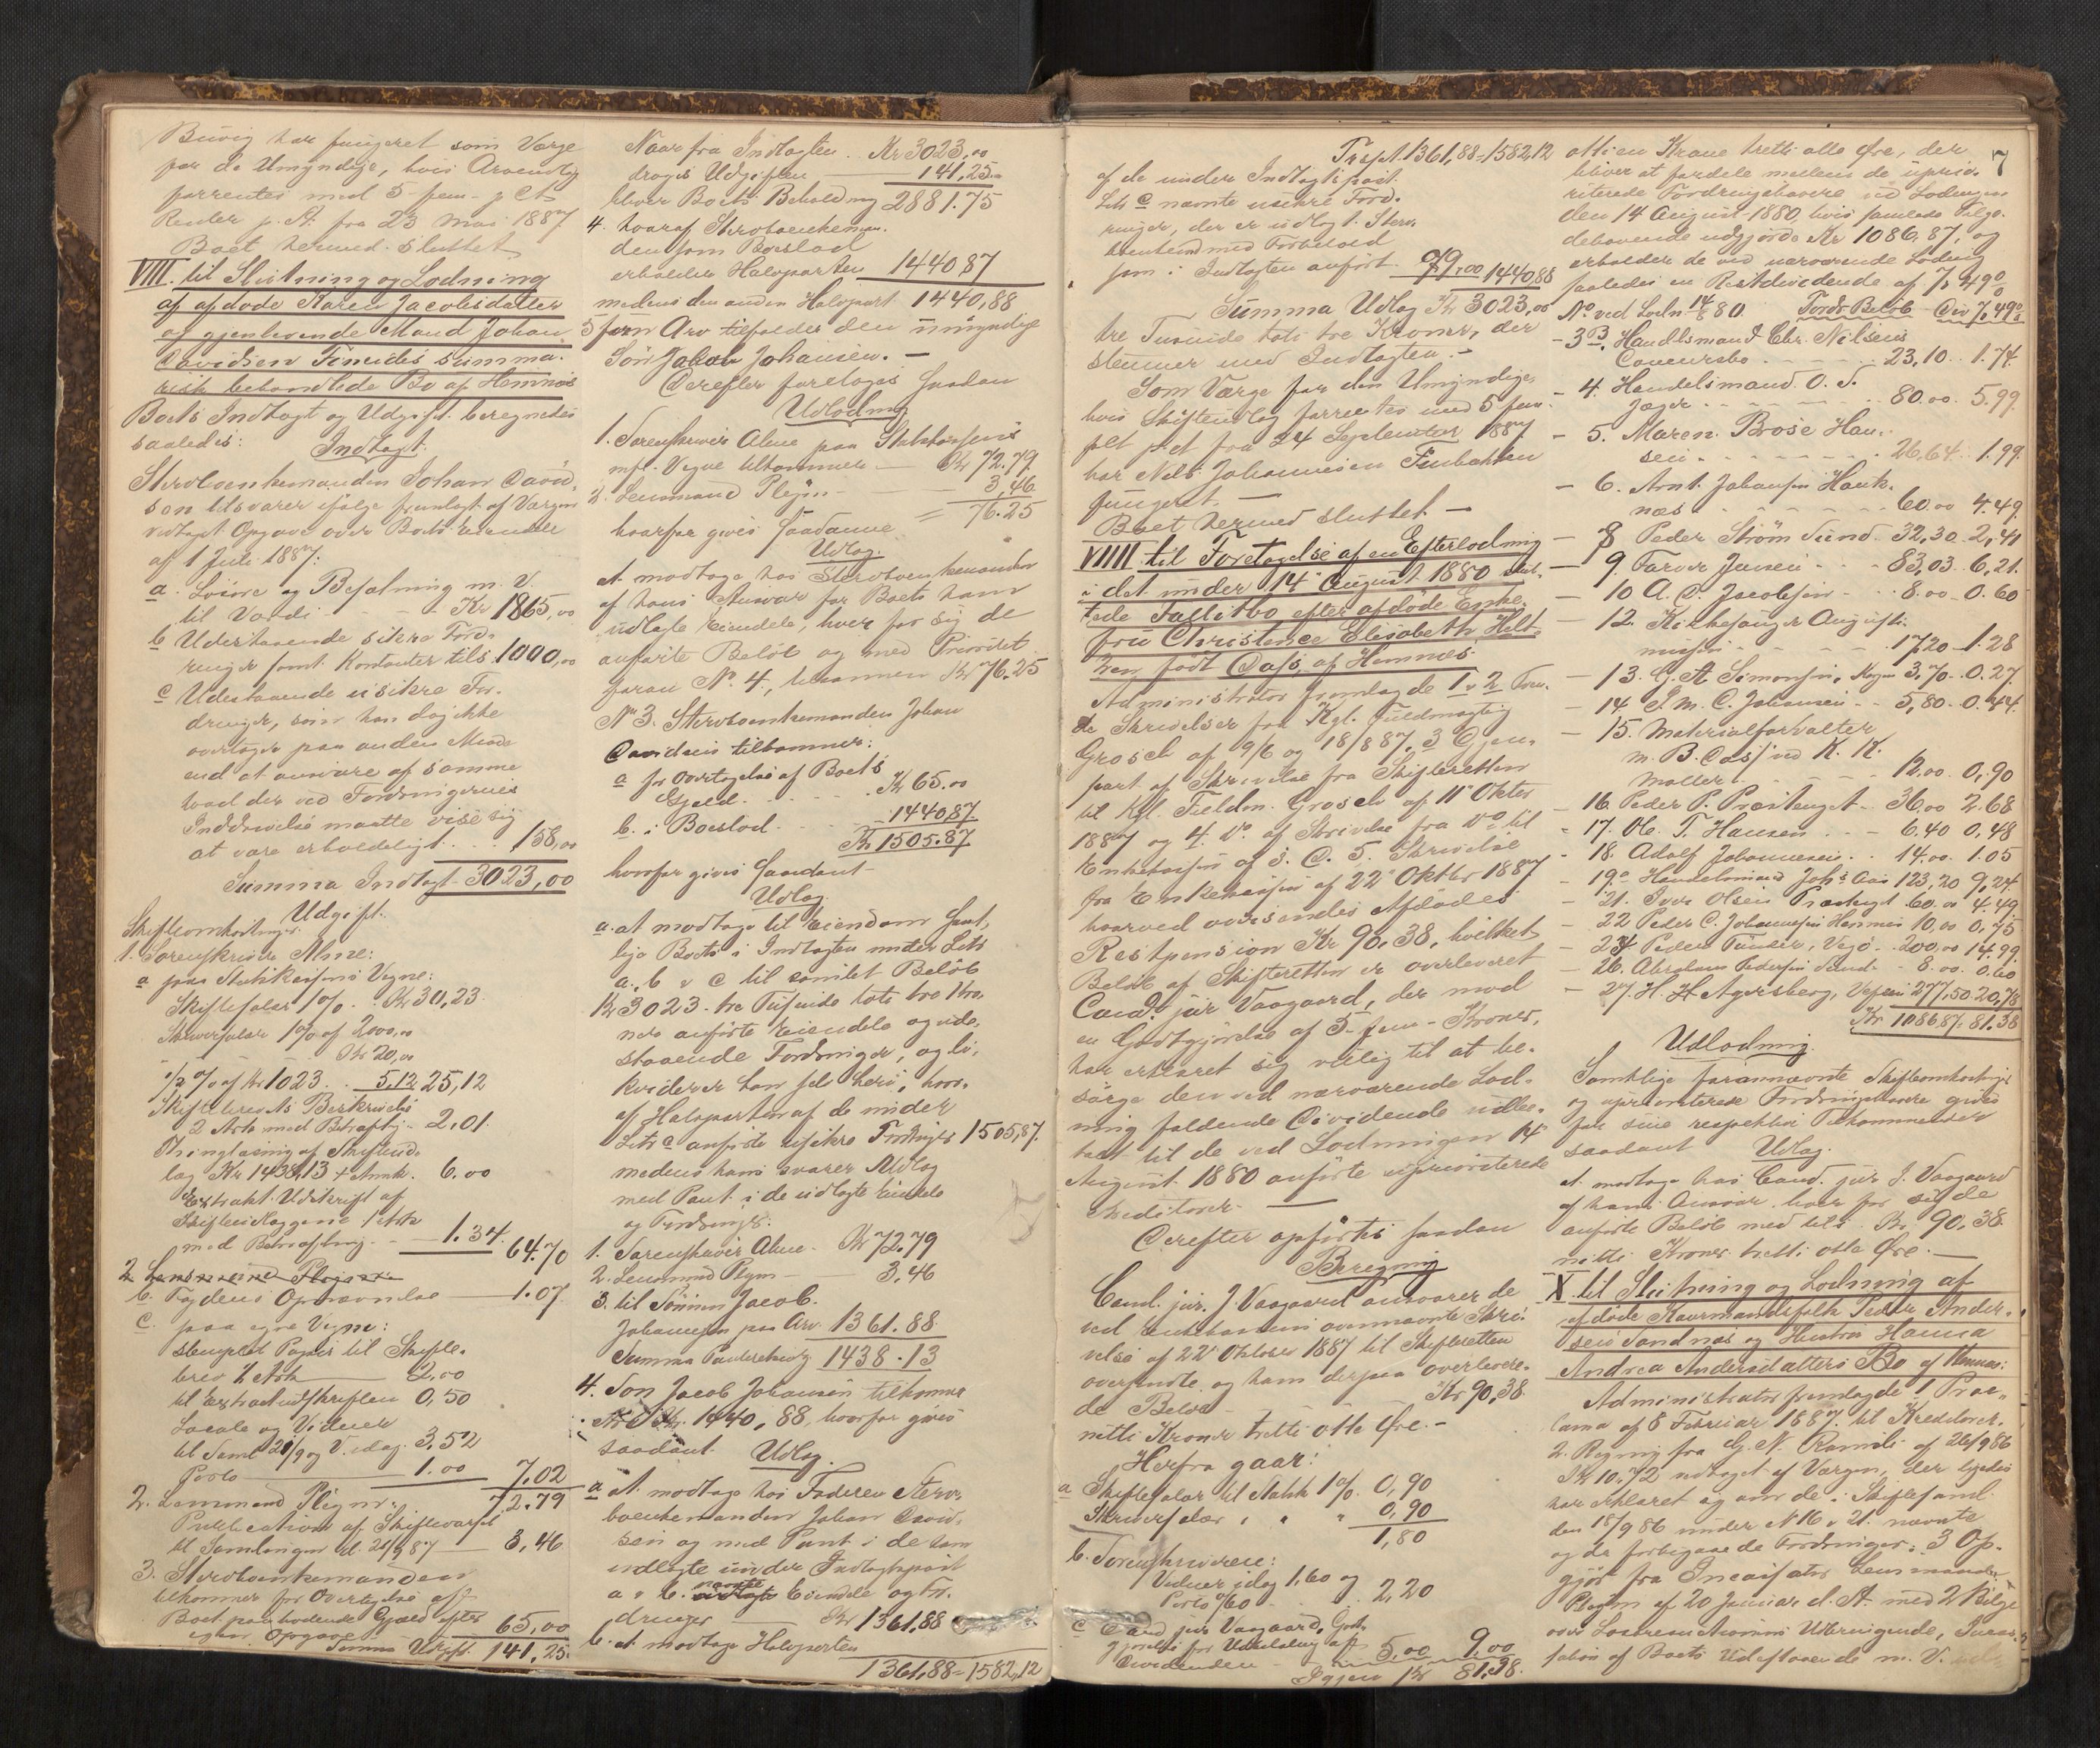 Buvig har fungeret som Værge
for de Umyndige, hvis Arvendlæg
forrentes med 5 fem p Ct
Renter p. A. fra 23 Mai 1887
Boet hermed sluttet
VIII. til Slutning og Lodning
af afdøde Karen Jacobsdatter
og gjenlevende Mand Johan
Davidsen Fineides summa-
risk behandlede Bo af Hemnæs
Boets Indtægt og Udgift beregnedes
saaledes:
Indtægt.
Stervboenkemanden Johan David-
sen tilsvarer ifølge fremlagt af Værgen
vedtaget Opgave over Boets Eiendele
af 1 Juli 1887:
a. Løsøre og Besætning m. V.
til Værdi - - - Kr 1865,00
b Udestaaende sikre Ford-
ringer samt Kontanter tils. 1000,00
c Udestaaende usikre For-
dringer, som han dog ikke
overtager paa anden Maade
end at ansvare af samme
hvad der ved Fordringernes
Inddrivelse maatte vise sig
at være erholdeligt . . . 158,00
Summa Indtægt 3023,00
Udgift.
Skifteomkostninger
1. Sorenskriver Alme:
a paa Statskassens Vegne:
Skiftesalær 1% . Kr 30,23
Skriversalær 1% af 2000,00
Kr 20,00
1/2 % af Kr 1023 . . 5,12 25,12
Skiftebrevets Beskrivelse
2 Ark med Bekræftg. 2,01
Thinglæsning af Skifteud-
læg Kr 1438,13 + Anmk. 6.00
Extrakt Udskrift af
Skifteudlæggene 1 Ark
med Bekræftning - - 1.34 64.70
2 Lensmand Plejm
b. Fogdens Opnævnelse 1.07
c. paa egne Vegne:
stemplet Papir til Skifte-
brev 1/2 Ark 2,00
til Extraktudskriften 0,50
Locale og Vidner
til Saml 21/9 og V. idag 3,52
Porto 1.00 7,02
72,79
2. Lensmand Plejm:
Publication af Skiftevarsel
til Samlingen d. 21/9 87 3,46
3. Stervboenkemanden
tilkommer for Overtagelse af
Boet paahvilende Gjæld efter
egen Opgave 65,00
Summa Udgift 141,25.
Naar fra Indtægten . . Kr 3023,00
drages Udgiften 141,25
bliver Boets Beholdning 2881.75
4. hvoraf Stervboenkeman-
den som Boeslod
erholder Halvparten 1440,87
medens den anden Halvpart 1440,88
5 som Arv tilfalder den umyndige
Søn Jakob Johansen. —
Derefter foretoges saadan
Udlodning
1. Sorenskriver Alme paa Statskassens
mfl. Vegne tilkommer — Kr 72.79
2. Lensmand Plejm 3,46
= 76.25
hvorfor gives saadanne
Udlæg.
at modtage hos Stervboenkemanden
af hans Ansvar for Boets ham
udlagte Eiendele, hver for sig de
anførte Beløb og med Prioritet
foran No. 4, tilsammen Kr 76.25
No 3. Stervboenkemanden Johan
Davidsen tilkommer:
a for Overtagelse af Boets
Gjæld . . . . . Kr 65.00
b. i Boeslod . . . . 1440,87
Kr 1505.87
hvorfor gives saadant
Udlæg
a. at modtage til Eiendom samt-
lige Boets i Indtægten under Litr
a, b & c til samlet Beløb
Kr 3023 tre Tusinde toti tre Kro-
ner anførte Eiendele og ude-
staaende Fordringer, og li-
kviderer han sel heri, hvor-
af Halvparten af de under
Litr c anførte usikre Fordringer 1505,87.
medens han svarer Udlæg
med Pant i de udlagte Eiendele
og Fordringer.
1. Sorenskriver Alme Kr 72.79
2. Lensmand Plejm 3,46
3. til Sønnen Jacob
Johansen paa Arv 1361.88
Summa Panteheftelse 1438.13
4. Søn Jacob Johansen tilkommer
Arv Kr. 1440,88, hvorfor gives
saadant Udlæg.
a at modtage hos Faderen Sterv-
boenkemanden Johan David-
sen og med Pant i de ham
udlagte under Indtægtspost
a & b. nævnte Eiendele og For-
dringer Kr 1361,88
b. at modtage Halvparten
1361,88 = 1582,12
7
Trspt. 1361,88 = 1582,12
af de under Indtægtspost
Litr c nævnte usikre Ford-
ringer, der er udlagt Sterv-
boenkemd med Forbehold
som i Indtægten anført 79,00 1440,88
Summa Udlæg Kr 3023,00
tre Tusinde toti tre Kroner, der
stemmer med Indtægten. —
Som Værge for den Umyndige,
hvis Skifteudlæg forrentes med 5 fem
pCt p. A. fra 24 September 1887
har Nels Johannesen Finbakken
fungeret. —
Boet hermed sluttet —
VIIII til Foretagelse af en Efterlodning
i det under 14 August 1880 slut-
tede Fallitbo efter afdøde Enke-
fru Christence Elisabeth Holt-
zen født Dass, af Hemnæs.
Administrator fremlagde 1 & 2 Tven-
de Skrivelser fra Kgl. Fuldmægtig
Grosch af 9/6 og 18/8 87, 3 Gjen-
part af Skrivelse fra Skifteretten
til Kgl. Fuldm. Grosch af 11 Oktbr
1887 og 4. Do af Skrivelse fra Do til
Enkekassen af s. D. 5. Skrivelse
fra Enkekassen af 22 Oktbr 1887
hvorved oversendes Afdødes
Restpension Kr 90,38, hvilket
Beløb af Skifteretten er overleveret
Cand. jur Vaagaard, der mod
en Godtgjørelse af 5 fem Kroner,
har erklæret sig villig til at be-
sørge den ved nærværende Lod-
ning faldende Dividende udbe-
talt til de ved Lodningen 14
August 1880 anførte uprioriterede
Kreditorer. —
Derefter opførtes saadan
Beregning
Cand. jur. J. Vaagaard ansvarer de
ved Enkekassens ovennævnte Skri-
velse af 22 Oktober 1887 til Skifteretten
oversendte og ham derpaa overlevere-
de Beløb Kr 90,38.
nitti Kroner tretti otte Øre. —
Herfra gaar:
a Skiftesalær til Statsk 1% 0,90
Skriversalær " " " 0,90
1,80
b. Sorenskriveren:
Vidner idag 1,60 og
Porto 0,60 2,20
c Cand jur Vaagaard, Godt-
gjørelse for Udbetaling af
Dividenden 5,00 9.00
Igjen Kr 81,38.
otti en Krone tretti otte Øre, der
bliver at fordele mellem de uprio-
riterede Fordringshavere ved Lodningen
den 14 August 1880, hvis samlede Tilgo-
dehavende udgjorde Kr 1086,87, og
erholder de ved nærværende Lodning
saaledes en Restdividende af 7,49%
No ved Lodn 14/8 80. Fordr Beløb Div 7,49%
3 B. Handelsmand Chr. Nilsens
Concursbo . . . 23,10 . 1.74.
4. Handelsmand O. S.
Jæger . . . 80.00. 5.99
5. Maren Brose Han-
sen . . . 26,64. 1.99.
6. Arnt Johansen Hauk-
næs . . . 60.00 4.49
8 Peder Strøm Sund . 32,30. 2,41
9. Farver Jensen . . 83,03. 6,21.
10 A. D. Jacobsen . . 8.00. 0.60
12. Kirkesanger Augusti-
nusen . . . 17,20 1.28
13. G. A Simonsen, 3,70. 0.27.
14 J. M. C. Johansen . . 5,80. 0.44.
15. Materialforvalter
m. B. Dass ved K. K.
Møller . . . 12.00 0,90
16 Peder P. Præstenget . . 36,00 2.68
17. Ole T. Hansen . . . 6.40 0,48
18. Adolf Johannesen . . 14.00. 1.05
19. Handelsmand Johs Aas 123,20 9,24.
21. Iver Olsen Præstengt 60.00 4.49
22 Peder C. Johannesen Hemnæs 10,00 0,75
24 Peder Tünder, Vegø . . 200,00 14.99.
26. Abraham Pedersen Sund . 8.00. 0.60
27. H. H. Agersborg, Vefsen 277,50. 20,78
Kr 1086,87. 81.38
Udlodning.
Samtlige forannævnte Skifteomkostninger
og uprioriterede Fordringshavere gives
for sine respektive Tilkommender
saadant Udlæg.
at modtage hos Cand. jur J. Vaagaard
af hans Ansvar, hver for sig de
anførte Beløb med tils. Kr 90,38
nitti Kroner tretti otte Øre. —
X til Slutning og Lodning af
afdøde Kaarmandsfolk Peder Ander-
sen Sandnæs og Hustru Hanna
Andrea Andersdatters Bo af Hemnæs:
Administrator fremlagde 1 Proc-
lama af 8 Februar 1887 til Kreditorer.
2. Regning fra G. N. Ramli af 26/9 86
Kr 10,72 vedtaget af Værgen, der ligeledes
har erklæret og om de i Skiftesaml.
den 18/9 86 under N 16 & 21 nævnte
og de forbigaaede Fordringer. 3 Op-
gjør fra Incassator Lensmand
Plejm af 20 Januar d. A. med 2 Bilage
over Løsøreauktionens Udbringende, Incas-
sation af Boets Udestaaende m. V.